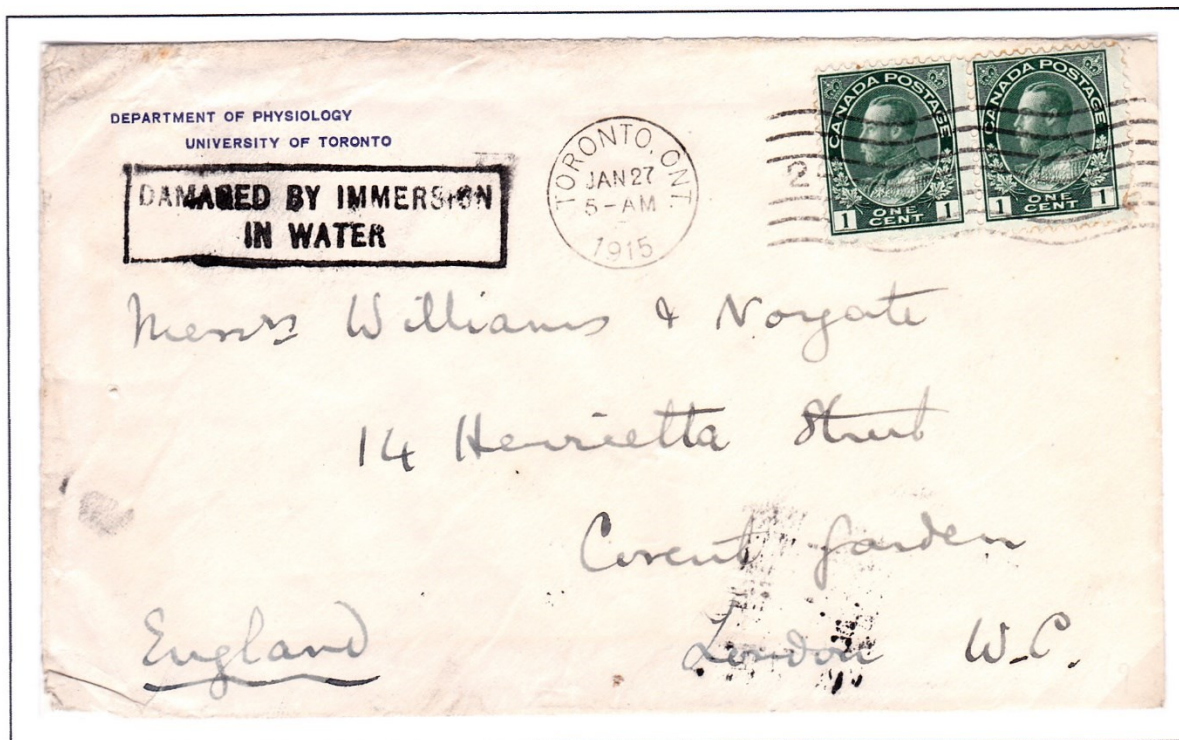 DEPARTMENT OF PHYSIOLOGY
UNIVERSITY OF TORONTO
DAMAGED BY IMMERSION
IN WATER
TORONTO, ONT.
JAN 27
5-AM
1915
2
CANADA POSTAGE
1 ONE CENT 1
CANADA POSTAGE
1 ONE CENT 1
Messrs Williams & Norgate
14 Henrietta Street
Covent Garden
London W.C.
England